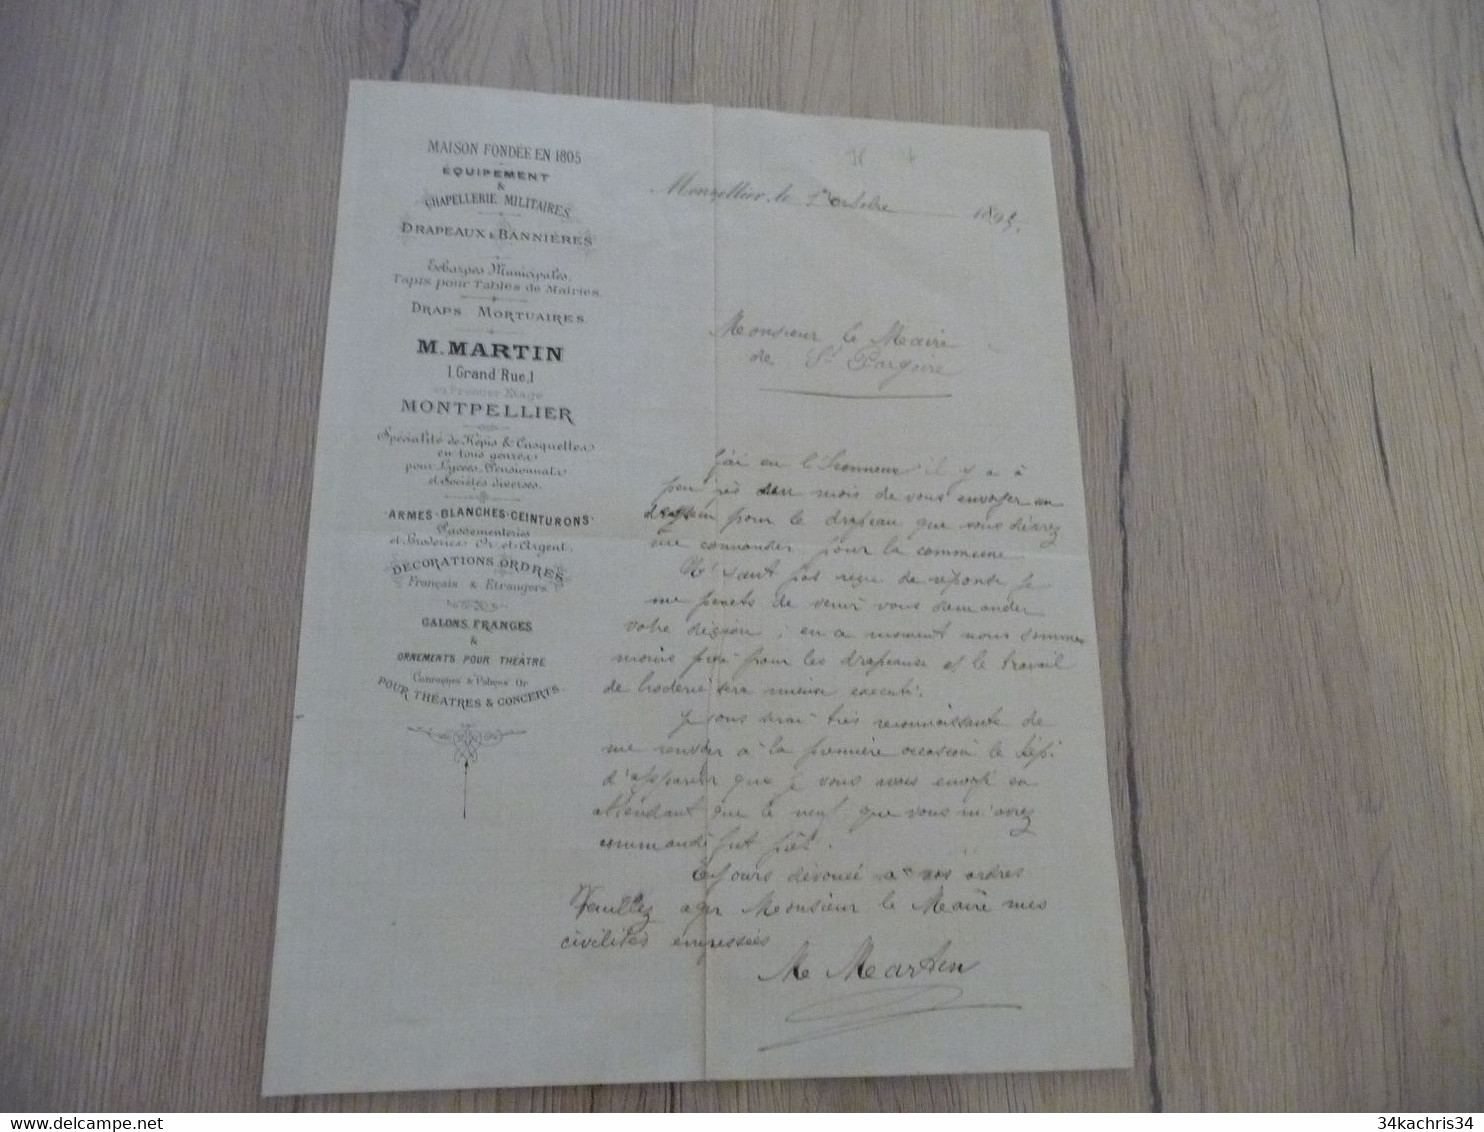 MAISON FONDÉE EN 1805
ÉQUIPEMENT
&
CHAPELLERIE MILITAIRES
DRAPEAUX & BANNIÈRES
Echarpes Municipales,
Tapis pour Tables de Mairies.
DRAPS MORTUAIRES.
M. MARTIN
1, Grand'Rue, 1
au Premier Etage
MONTPELLIER
Spécialité de Képis & Casquettes
en tous genres
pour Lycées, Pensionnats
et Sociétés diverses.
ARMES-BLANCHES-CEINTURONS
Passementeries
et Broderies Or et Argent.
DECORATIONS ORDRES
Français & Etrangers
GALONS, FRANGES
&
ORNEMENTS POUR THÉATRE
Couronnes & Palmes Or
POUR THÉATRES & CONCERTS.
Montpellier, le 1er Octobre 1895.
Monsieur le Maire
de St Pargoire
J'ai eu l'honneur il y a à
peu près un mois de vous envoyer un
dessin pour le drapeau que vous désirez
me commander pour la commune
N'ayant pas reçu de réponse je
me permets de venir vous demander
votre décision ; en ce moment nous sommes
moins pris pour les drapeaux et le travail
de broderie sera mieux executé.
Je vous serai très reconnaissante de
me renvoyer à la première occasion le Képi
d'apparier que je vous avais envoyé en
attendant que le neuf que vous m'avez
commandé fut prêt.
Toujours dévouée à vos ordres
Veuillez agr Monsieur le Maire mes
civilités empressées
M Martin
34kachris34